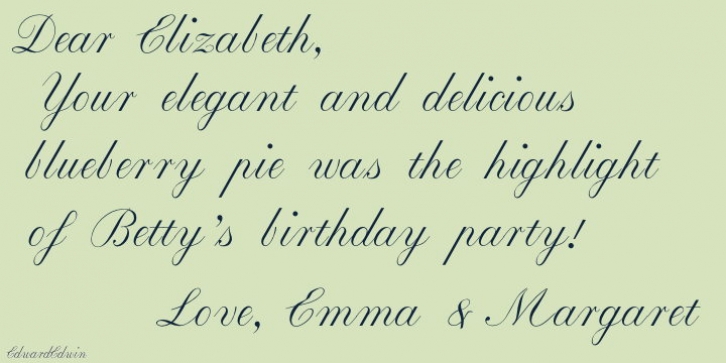 Dear Elizabeth,
Your elegant and delicious
blueberry pie was the highlight
of Betty's birthday party!
Love, Emma & Margaret
EduardEdwin